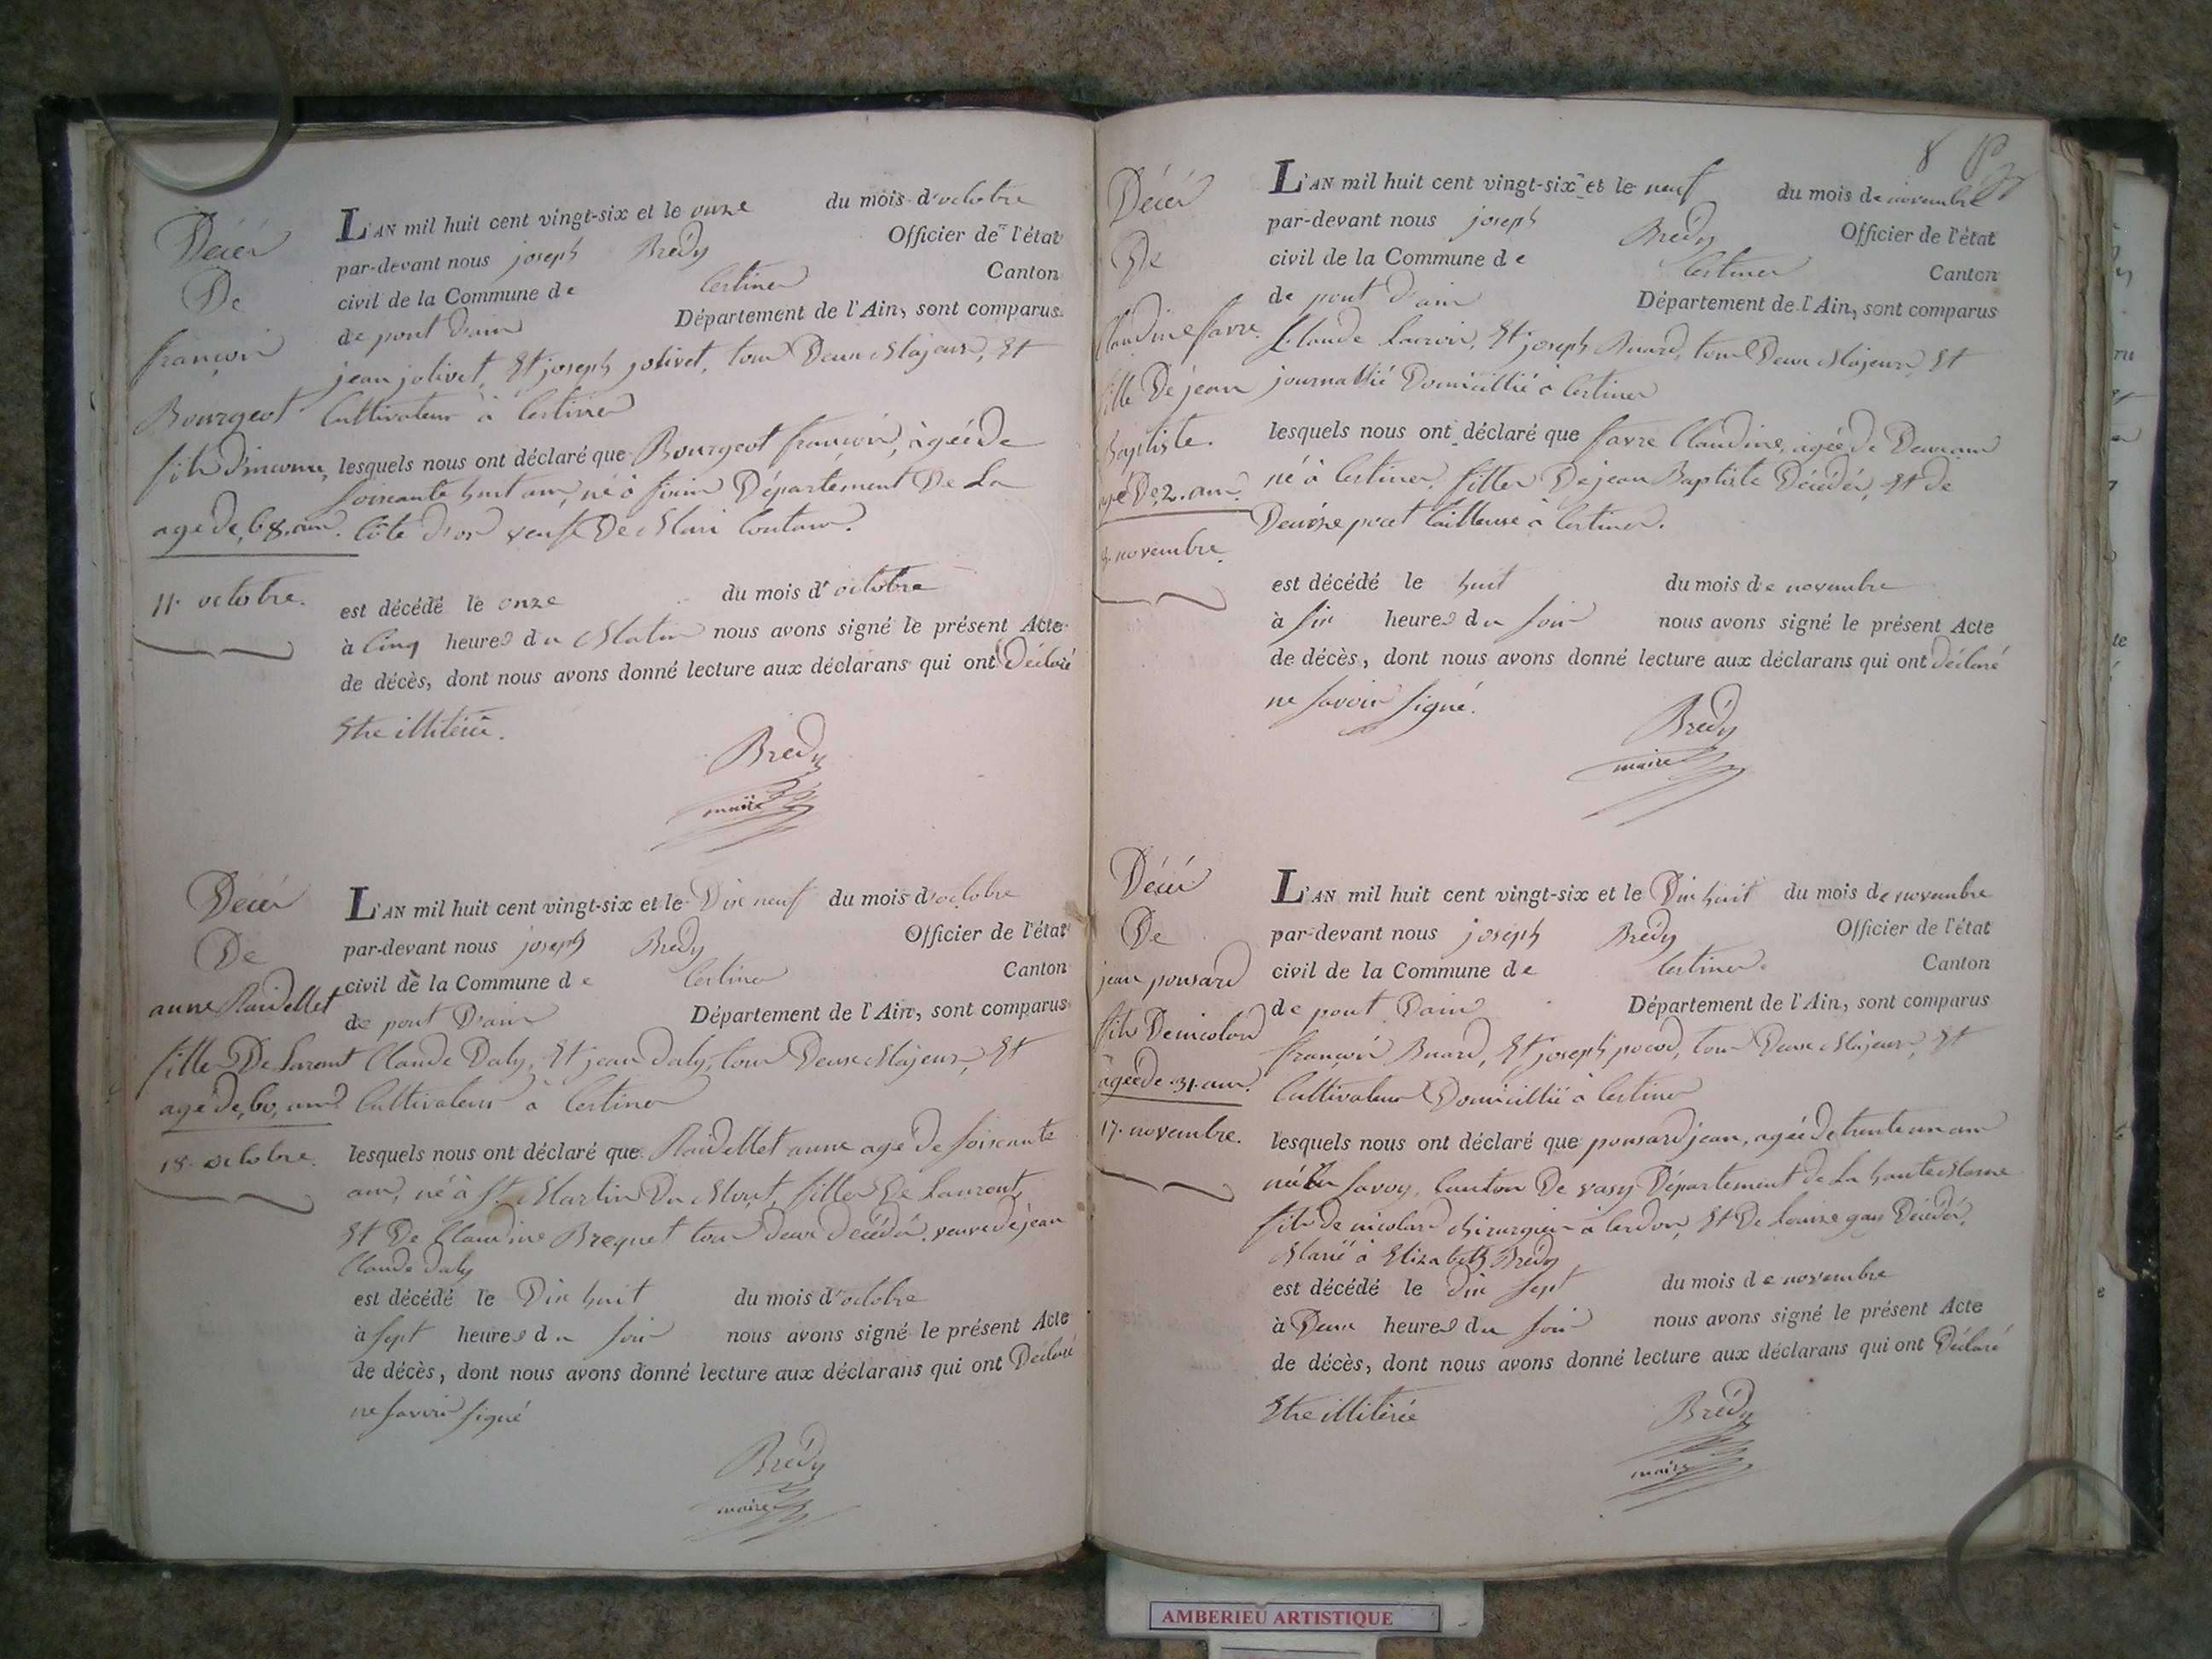 Décès
De
françois
Bourgeot
fils d'inconnu,
agé de, 68. ans.
11. octobre.
L'AN mil huit cent vingt-six et le onze du mois d'octobre
par-devant nous joseph Brédy Officier de l'état
civil de la Commune de Certines Canton
de pont d'ain Département de l'Ain, sont comparus
jean jolivet, Et joseph jolivet, tous Deux Majeurs, Et
Cultivateurs à Certines
lesquels nous ont déclaré que Bourgeot françois, àgée De
soixante huit ans, né à fixin Département De La
Côte d'or veuf De Marie
est décédé le onze du mois d'octobre
à Cinq heures du Matin nous avons signé le présent Acte
de décès, dont nous avons donné lecture aux déclarans qui ont Déclaré
Etre illitérée.
Brédy
maire
Décès
De
anne Raidellet
filles De Laurent
agé de, 60, ans
18. octobre.
L'AN mil huit cent vingt-six et le Dix neuf du mois d'octobre
par-devant nous joseph Brédy Officier de l'état
civil de la Commune de Certines Canton
de pont D'ain Département de l'Ain, sont comparus
Claude Daly, Et jean daly, tous Deux Majeurs, Et
Cultivateurs à Certines
lesquels nous ont déclaré que Raidellet anne agé de soixante
ans, né à St. Martin Du Mont, filles De Laurent,
Et De Claudine Brequet tous deux décédés. veuve de jean
Claude daly
est décédé le Dix huit du mois d'octobre
à sept heures du soir nous avons signé le présent Acte
de décès, dont nous avons donné lecture aux déclarans qui ont Déclaré
ne savoir signé
Brédy
maire
8
Décès
De
Claudine favre.
fille De jean
Baptiste.
agé De, 2. ans.
8. novembre.
L'AN mil huit cent vingt-six et le neuf du mois de novembre
par-devant nous joseph Brédy Officier de l'état
civil de la Commune de Certines Canton
de pont d'ain Département de l'Ain, sont comparus
Claude Lacroix, Et joseph Buard, tous Deux Majeurs, Et
journallié Domicillié à Certines
lesquels nous ont déclaré que favre Claudine, agée de Deux ans
né à Certines, filles De jean Baptiste Décédés, Et de
Denize tailleuse à Certines.
est décédé le huit du mois de novembre
à six heures du soir nous avons signé le présent Acte
de décès, dont nous avons donné lecture aux déclarans qui ont déclaré
ne savoir signé.
Brédy
maire
Décès
De
jean ponsard
fils De nicolas
àgée de 31. ans.
17. novembre.
L'AN mil huit cent vingt-six et le Dix huit du mois de novembre
par-devant nous joseph Brédy Officier de l'état
civil de la Commune de Certines. Canton
de pont Dain Département de l'Ain, sont comparus
françois Buard, Et joseph tous Deux Majeurs, Et
Cultivateurs Domicillié à Certines
lesquels nous ont déclaré que ponsard jean, agée de trente un ans
né savoy, Canton De vasy Département de la haute Marne
fils de nicolas chirurgien à Cerdon, Et De Louize Décédés,
Marié à Elizabeth Brédy
est décédé le dix sept du mois de novembre
à Deux heures du soir nous avons signé le présent Acte
de décès, dont nous avons donné lecture aux déclarans qui ont Déclaré
Etre illitérée
Brédy
maire
AMBERIEU ARTISTIQUE